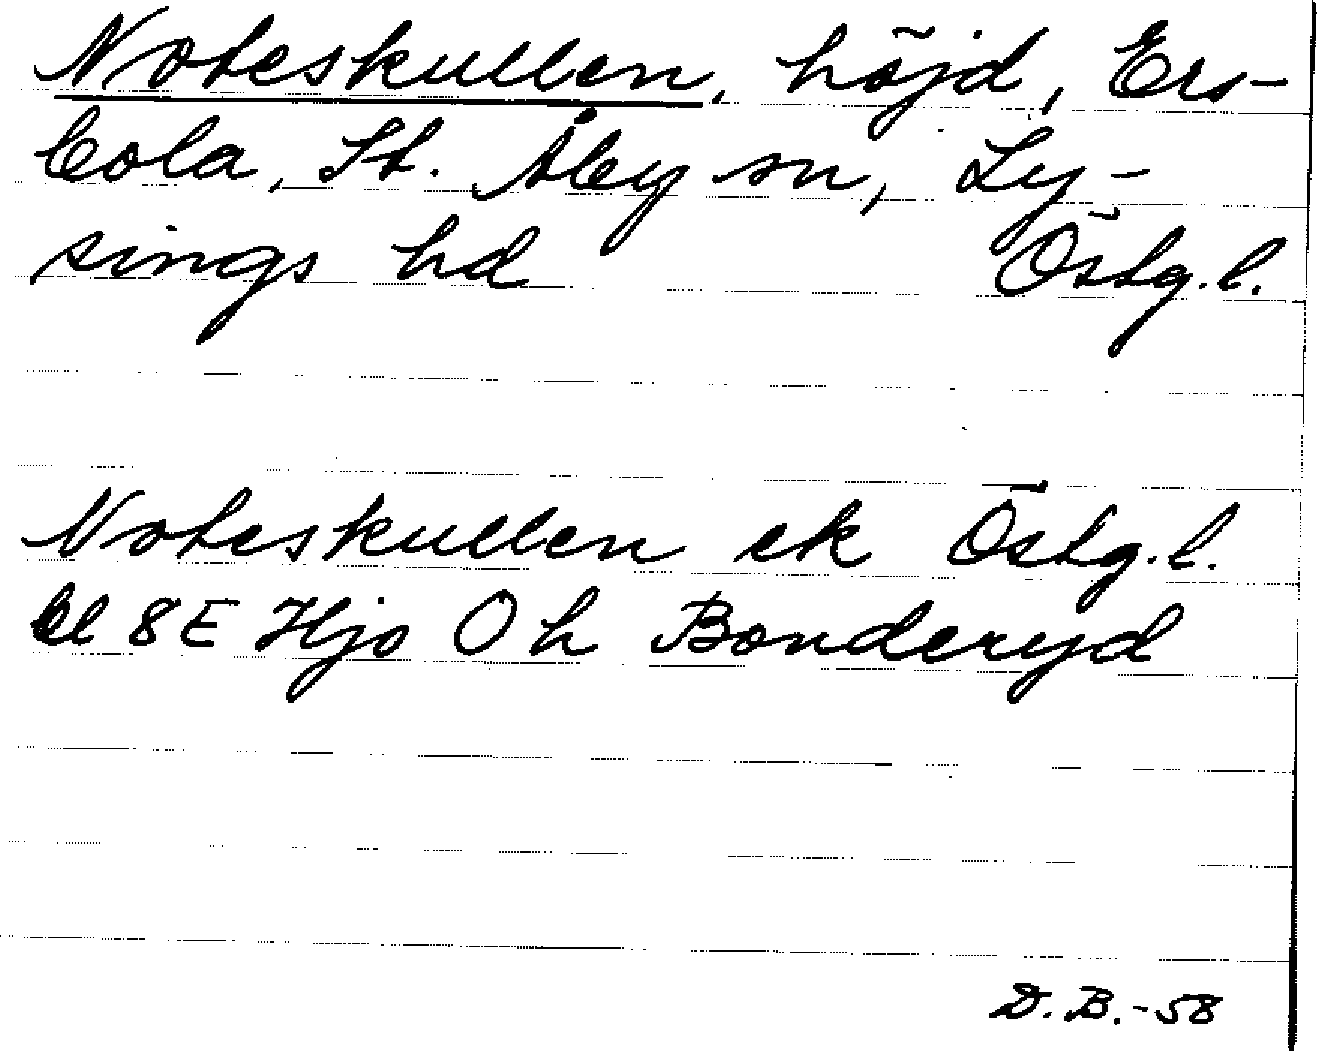 Noteskullen, höjd, Ers-
bola, St. Åby sn, Ly-
sings hd Östg.l.
Noteskullen ek Östg.l.
bl 8E Hjo O h Bonderyd
D.B.-58